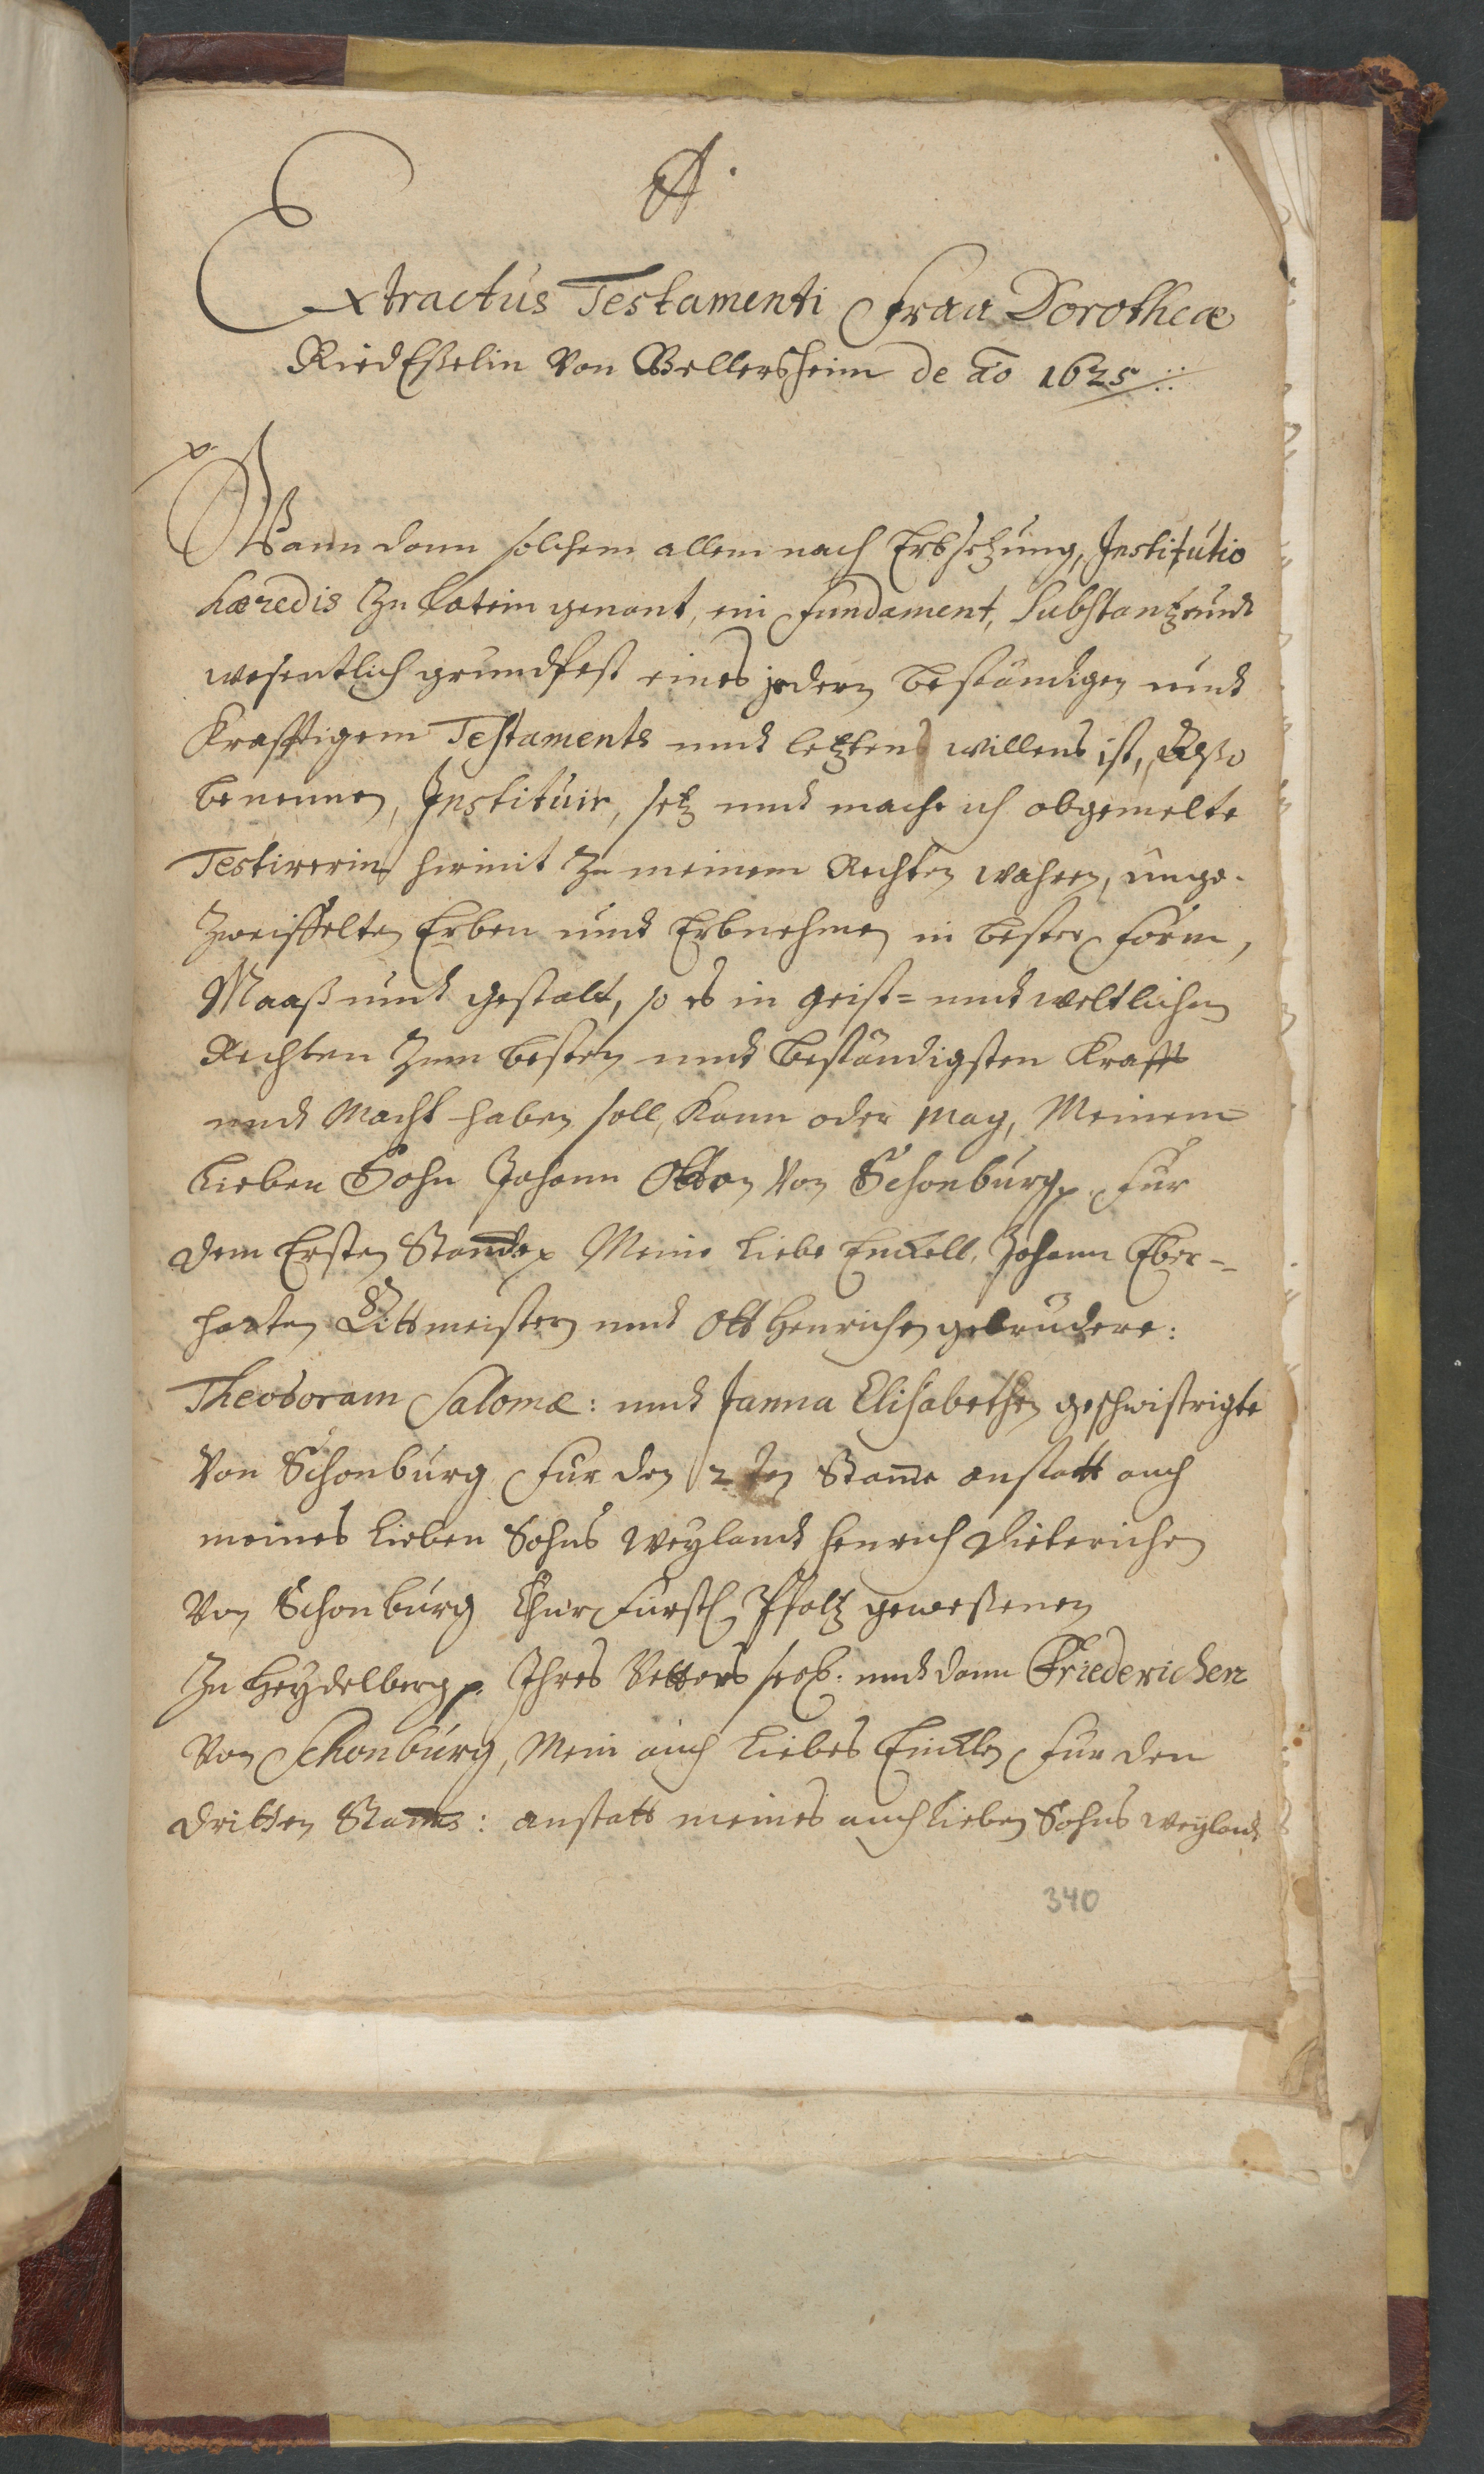 A.
Extractus Testamenti Fraa Dorotheæ
RiedEßelin Von Bellersheim de ao 1625
Wann dann solchem allem nach Erbsetzung, Institutio
hæredis Zu Latein genant, ein fundament, Substantz undt
wesentlich grundfest eines jedern beständigen undt
Krafftigem Testaments undt letztens willens ist, Alßo
benennen, Instituir, setz undt mache ich obgemelte
Testirerin hiermit Zu meinem Rechten wahren, unge-
Zweiffelten Erben undt Erbnehmen in bester form,
Maaß undt gestalt, so es in geist= undt weltlichen
Rechten Zum besten undt beständigsten Krafft
undt Macht haben soll, Kann oder mag, Meinem
lieben Sohn Johann Otton Von Schonburg, für
dem Ersten Stamme Meine liebe Enckell, Johann Eber-
harten Rittmeistern undt Ott Henrichen gebrudere:
Theodoram Salome: undt Janna Elisabethen geschwistrigte
Von Schonburg für den 2ten Stamme anstatt auch
meines lieben Sohns weylandt Henrich Dieterichen
Von Schonburg Chur Fürstl Pfaltz geweßenen
Zu Heydelberg. Ihres Vatters seel. undt dann Friederichen
Von Schonburg, Mein auch liebes Encklen für den
dritten Stamms: anstatt meines auch lieben Sohns weylandt
340